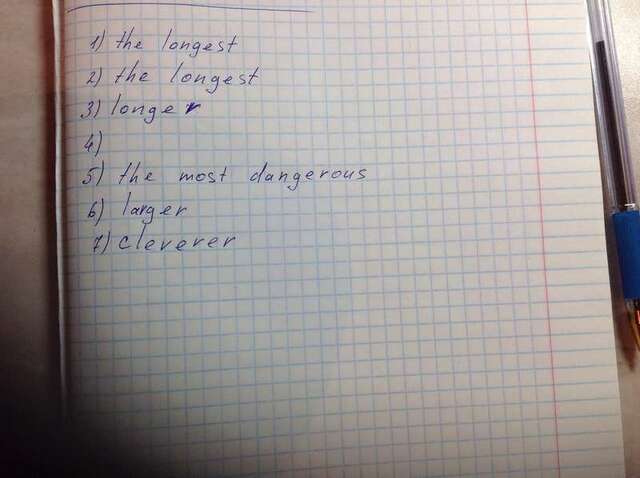 1) the longest
2) the longest
3) longer
4)
5) the most dangerous
6) larger
7) cleverer